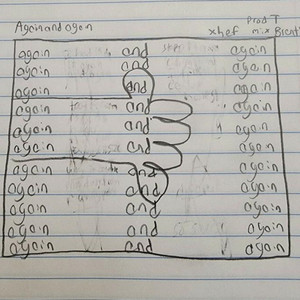 Again and again
Prod T
xhef mix Brent
again and again
again and again
again and again
again and again
again and again
again and again
again and again
again and again
again and again
again and again
again and again